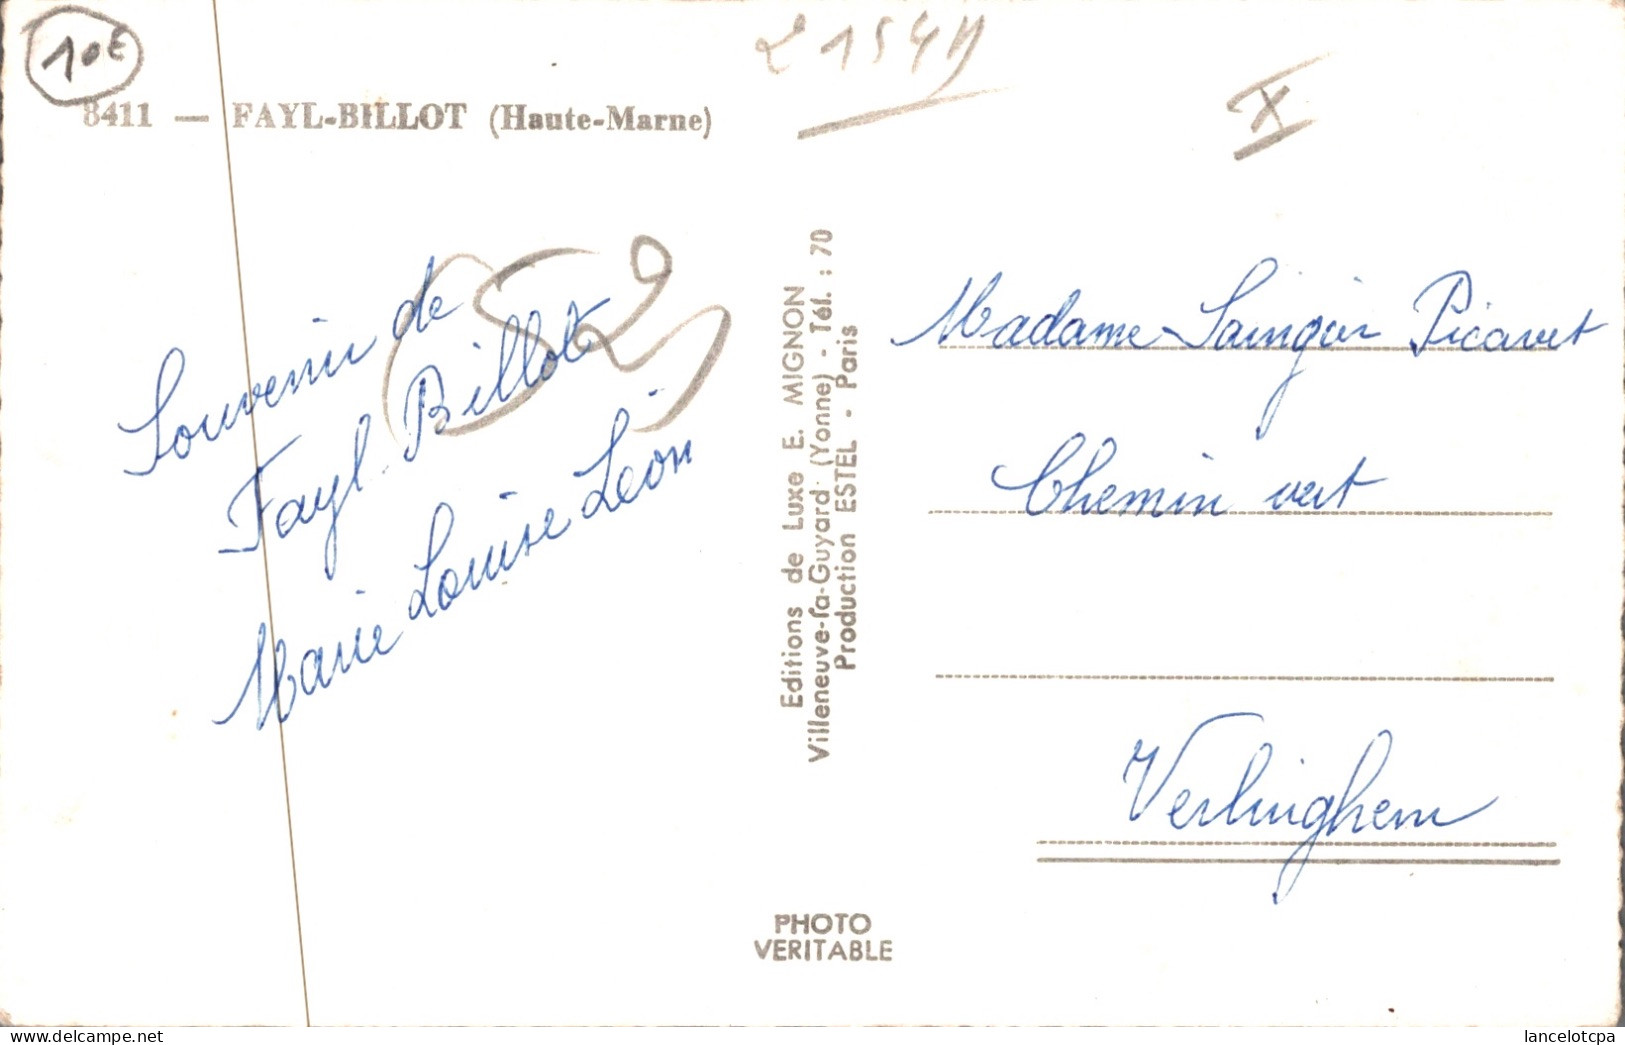 10E
21549
X
8411 — FAYL-BILLOT (Haute-Marne)
52
Souvenir de
Fayl-Billot
Marie Louise Léon
Editions de Luxe E. MIGNON
Villeneuve-la-Guyard (Yonne) - Tél. : 70
Production ESTEL - Paris
Madame Saingier Picavet
Chemin vert
Verlinghem
PHOTO
VERITABLE
lancelotcpa